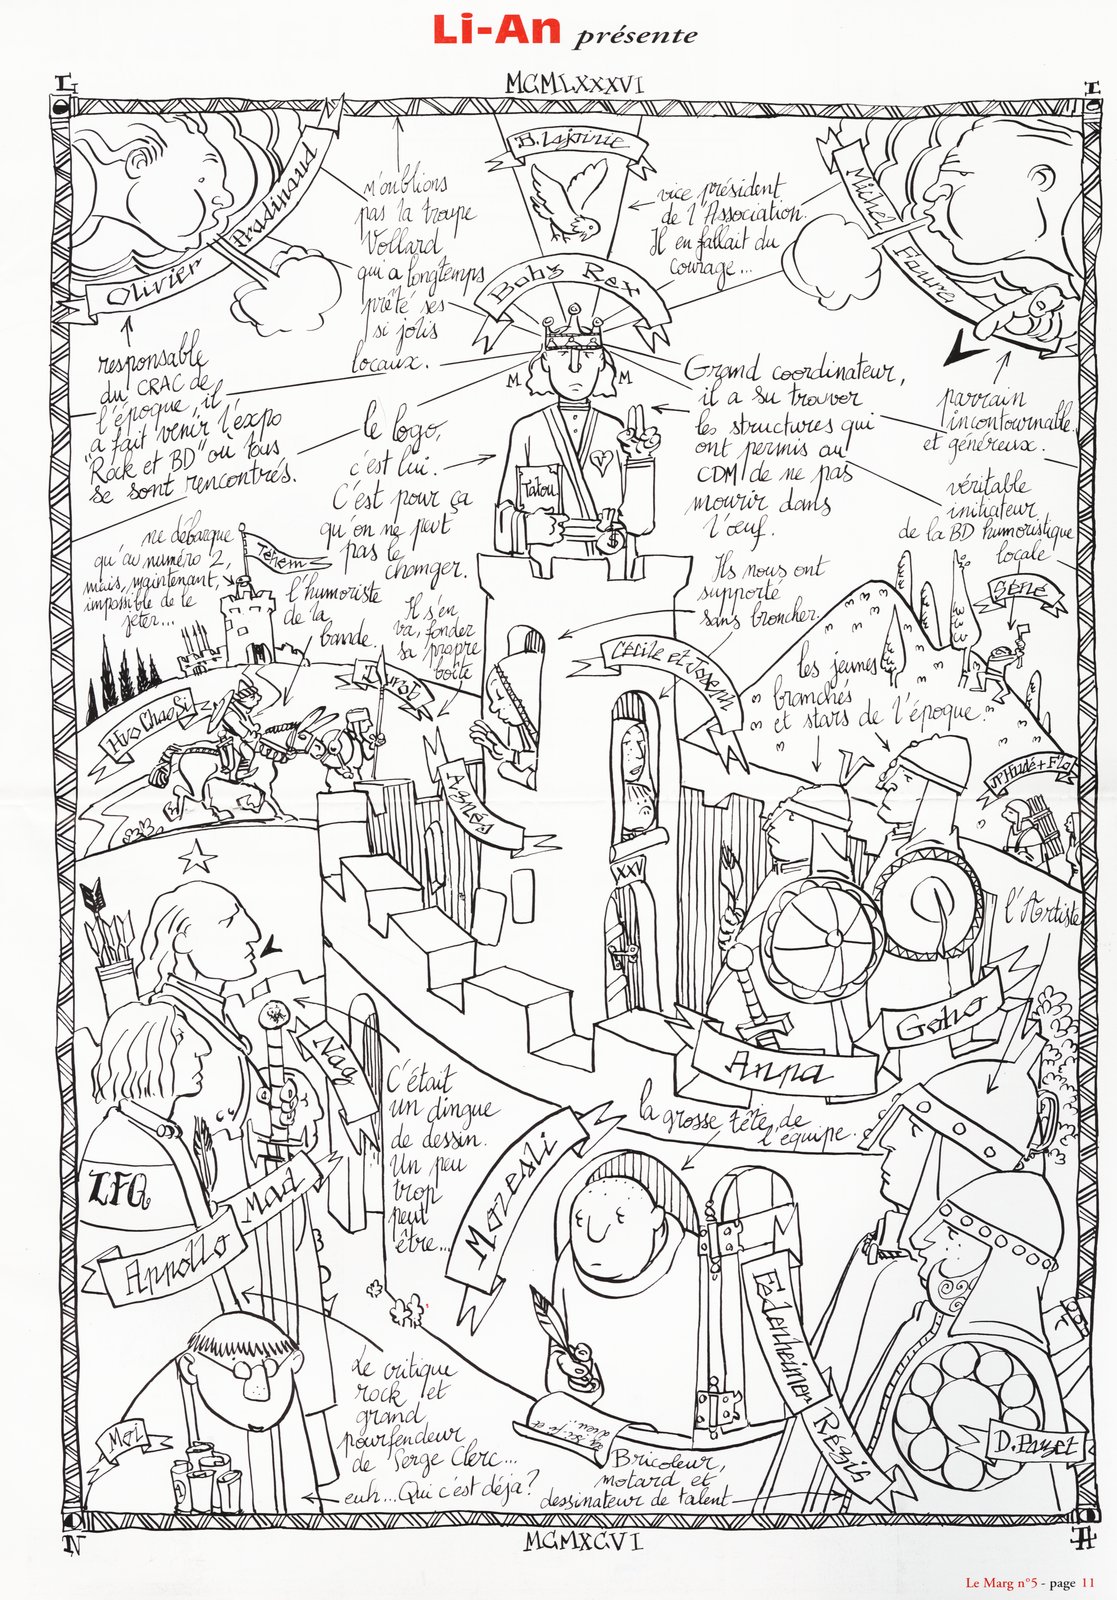 Li-An présente
MCMLXXXVI
L
I
B. Lajoinie
Olivier
Pradinaud
Michel
Faure
n'oublions
pas la troupe
Vollard
qui a longtemps
prêté ses
si jolis
locaux.
vice président
de l'Association.
Il en fallait du
courage...
Boby Rex
M
M
Tatou
$
responsable
du CRAC de
l'époque, il
a fait venir l'expo
"Rock et BD" où tous
se sont rencontrés.
le logo,
c'est lui.
C'est pour ça
qu'on ne peut
pas le
changer.
Grand coordinateur,
il a su trouver
les structures qui
ont permis au
CDM de ne pas
mourir dans
l'œuf.
parrain
incontournable
et généreux.
véritable
initiateur
de la BD humoristique
locale
Séné
ne débarque
qu'au numéro 2,
mais, maintenant,
impossible de le
jeter...
Téhem
l'humoriste
de la
bande.
Huo Chao Si
Il s'en
va, fonder
sa propre
boîte
Ils nous ont
supporté
sans broncher.
Cécile et Joseph
les jeunes
branchés
et stars de l'époque.
JP Hudé + Flo
XXV
l'Artiste
Anpa
Goho
Nag
C'était
un dingue
de dessin.
Un peu
trop
peut
être...
LFG
Mad
Appollo
la grosse tête de
l'équipe.
Mozesli
Fedenheimer
Régis
Moi
Le critique
rock et
grand
pourfendeur
de Serge Clerc...
euh... Qui c'est déjà?
Bricoleur,
motard et
dessinateur de talent
D. Payet
N
A
MCMXCVI
Le Marg n°5 - page 11